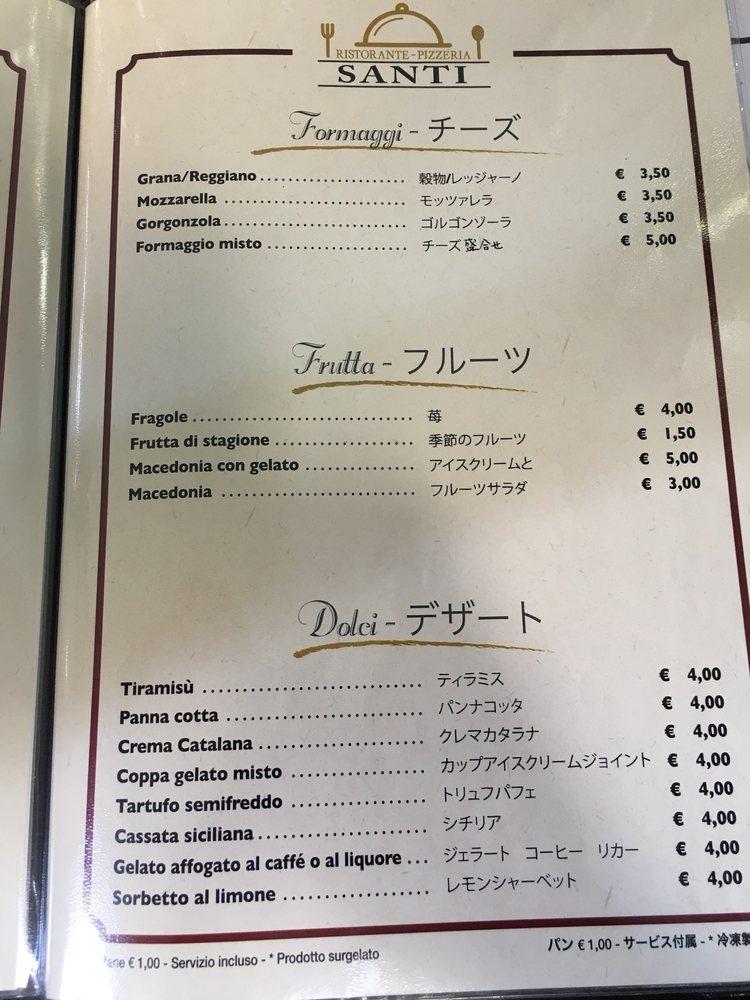 RISTORANTE - PIZZERIA
SANTI
Formaggi - チーズ
Grana/Reggiano ...................... 穀物/レッジャーノ € 3,50
Mozzarella ............................ モッツァレラ € 3,50
Gorgonzola ............................ ゴルゴンゾーラ € 3,50
Formaggio misto ..................... チーズ盛合せ € 5,00
Frutta - フルーツ
Fragole ................................. 苺 € 4,00
Frutta di stagione ..................... 季節のフルーツ € 1,50
Macedonia con gelato ................ アイスクリームと € 5,00
Macedonia ............................. フルーツサラダ € 3,00
Dolci - デザート
Tiramisù ................................. ティラミス € 4,00
Panna cotta .............................. パンナコッタ € 4,00
Crema Catalana ......................... クレマカタラナ € 4,00
Coppa gelato misto .................... カップアイスクリームジョイント € 4,00
Tartufo semifreddo .................... トリュフパフェ € 4,00
Cassata siciliana ......................... シチリア € 4,00
Gelato affogato al caffé o al liquore ... ジェラート コーヒー リカー € 4,00
Sorbetto al limone ..................... レモンシャーベット € 4,00
€ 1,00 - Servizio incluso - * Prodotto surgelato
パン € 1,00 - サービス付属 - * 冷凍